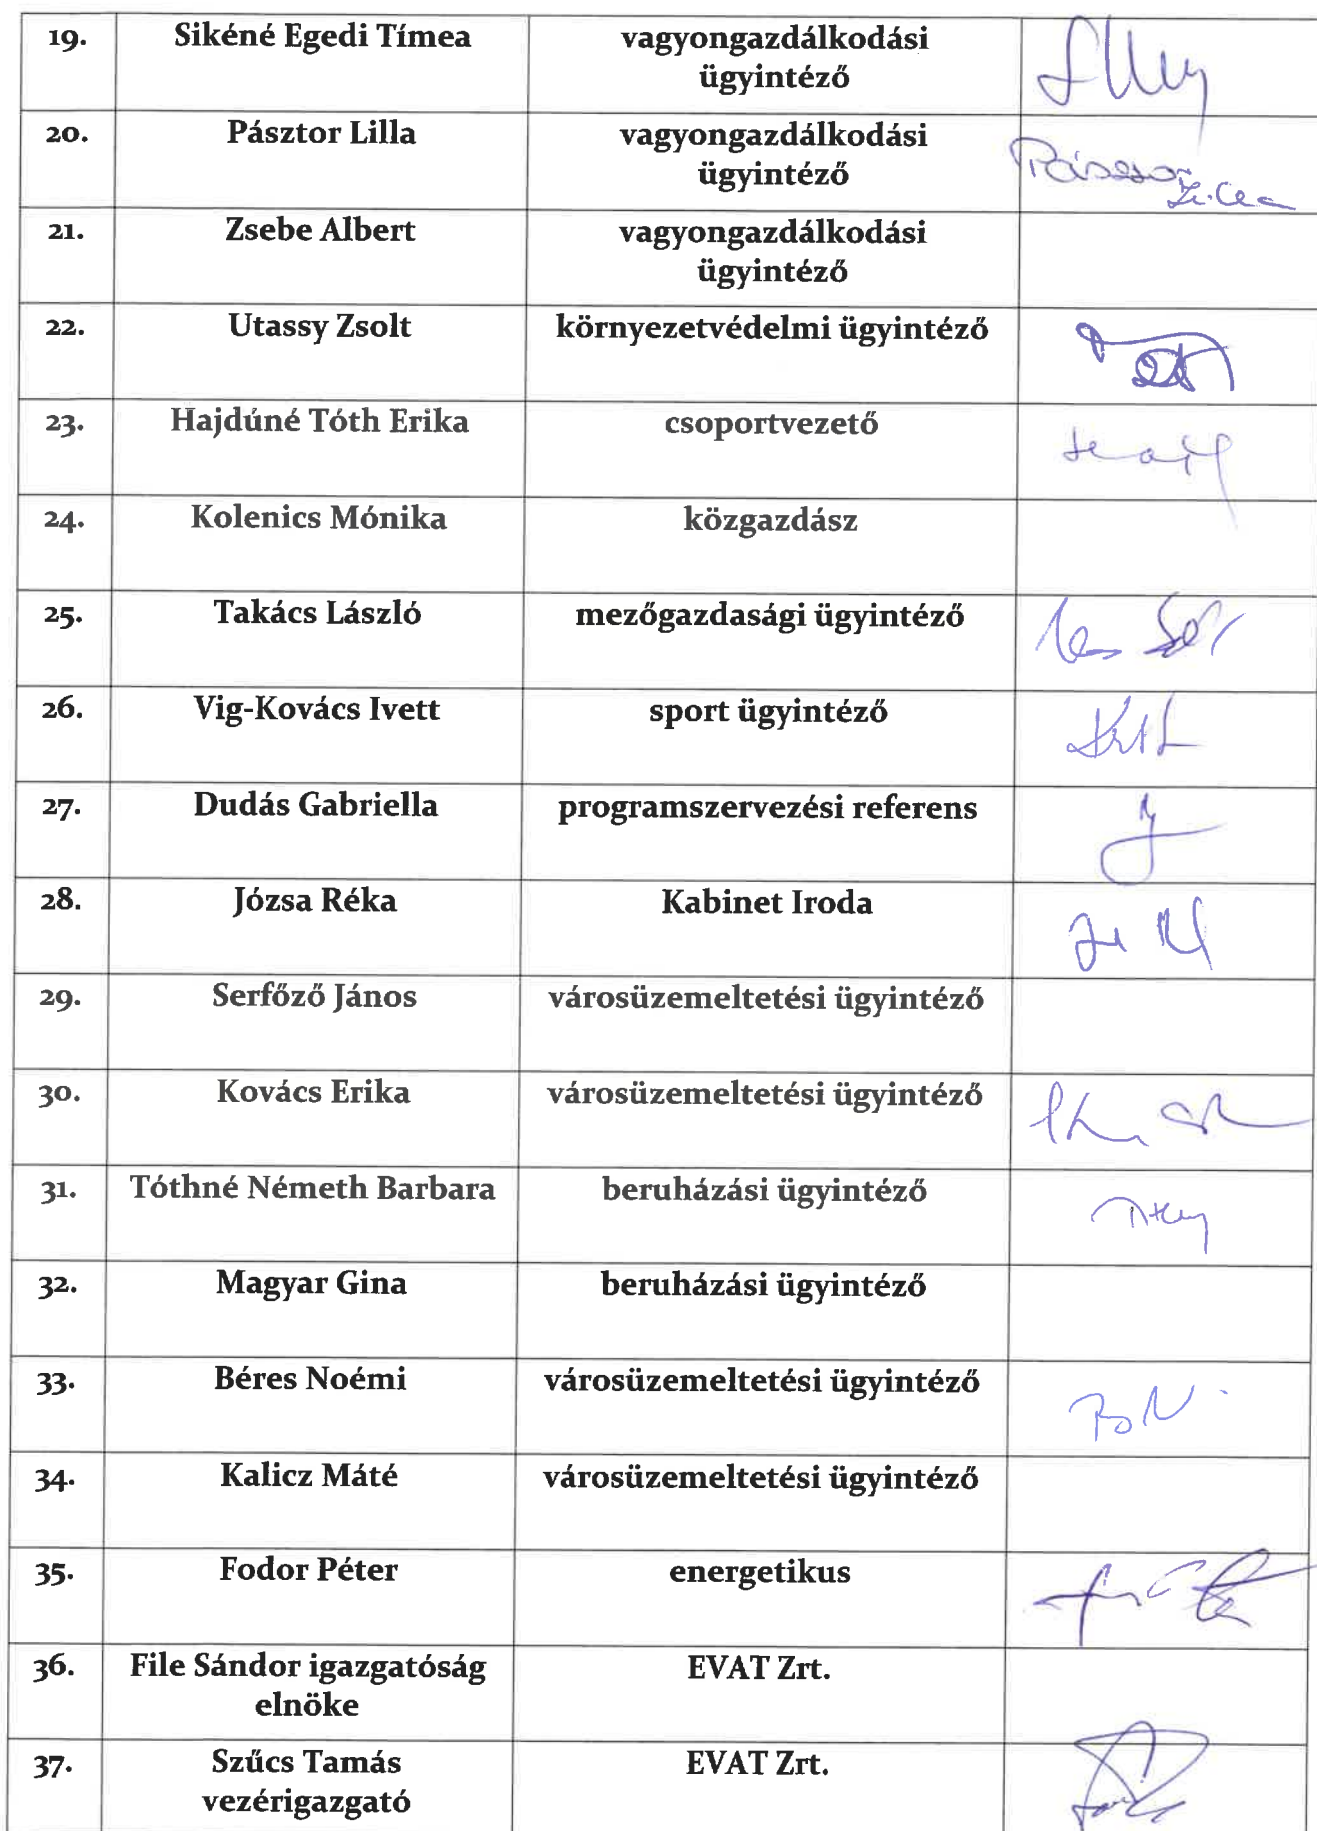 19. Sikéné Egedi Tímea vagyongazdálkodási
ügyintéző
20. Pásztor Lilla vagyongazdálkodási
ügyintéző
Pásztor
Lilla
21. Zsebe Albert vagyongazdálkodási
ügyintéző
22. Utassy Zsolt környezetvédelmi ügyintéző
23. Hajdúné Tóth Erika csoportvezető
24. Kolenics Mónika közgazdász
25. Takács László mezőgazdasági ügyintéző
26. Vig-Kovács Ivett sport ügyintéző
27. Dudás Gabriella programszervezési referens
28. Józsa Réka Kabinet Iroda
29. Serfőző János városüzemeltetési ügyintéző
30. Kovács Erika városüzemeltetési ügyintéző
31. Tóthné Németh Barbara beruházási ügyintéző
32. Magyar Gina beruházási ügyintéző
33. Béres Noémi városüzemeltetési ügyintéző
34. Kalicz Máté városüzemeltetési ügyintéző
35. Fodor Péter energetikus
36. File Sándor igazgatóság EVAT Zrt.
elnöke
37. Szűcs Tamás EVAT Zrt.
vezérigazgató